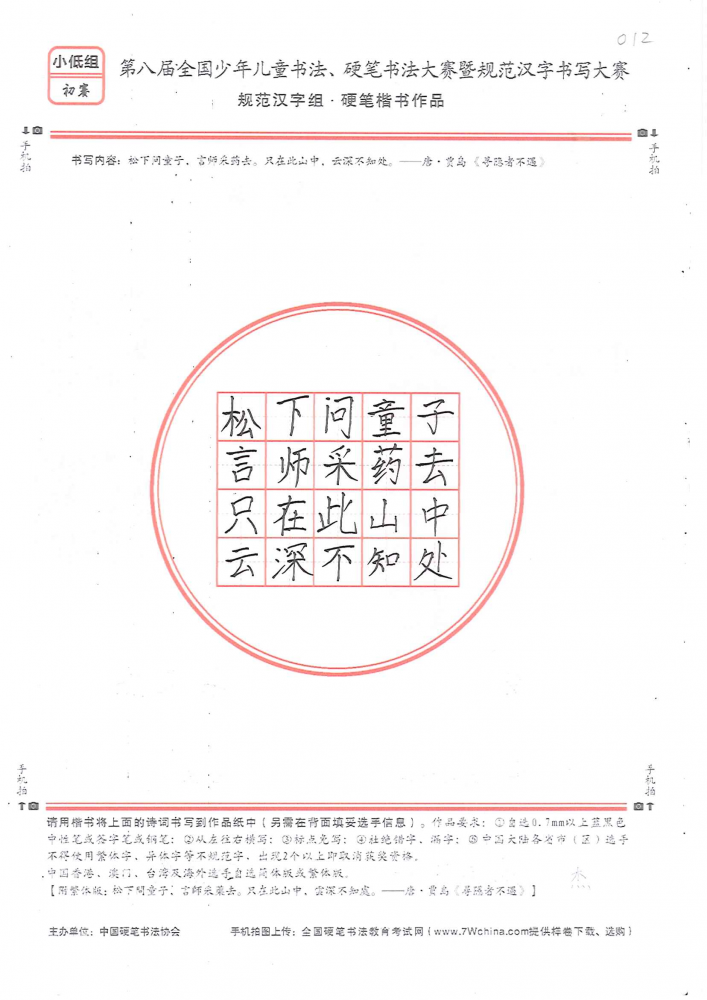 012
小低组
初赛
第八届全国少年儿童书法、硬笔书法大赛暨规范汉字书写大赛
规范汉字组·硬笔楷书作品
手机拍
手机拍
书写内容：松下问童子，言师采药去。只在此山中，云深不知处。——唐·贾岛《寻隐者不遇》
松下问童子
言师采药去
只在此山中
云深不知处
手机拍
手机拍
请用楷书将上面的诗词书写到作品纸中（另需在背面填妥选手信息）。作品要求：①自选0.7mm以上蓝黑色
中性笔或签字笔或钢笔；②从左往右横写；③标点免写；④杜绝错字、漏字；⑤中国大陆各省市（区）选手
不得使用繁体字、异体字等不规范字，出现2个以上即取消获奖资格。
中国香港、澳门、台湾及海外选手自选简体版或繁体版。
【附繁体版：松下問童子，言師采藥去。只在此山中，雲深不知處。——唐·賈島《尋隱者不遇》】
主办单位：中国硬笔书法协会
手机拍图上传：全国硬笔书法教育考试网（www.7Wchina.com提供样卷下载、选购）